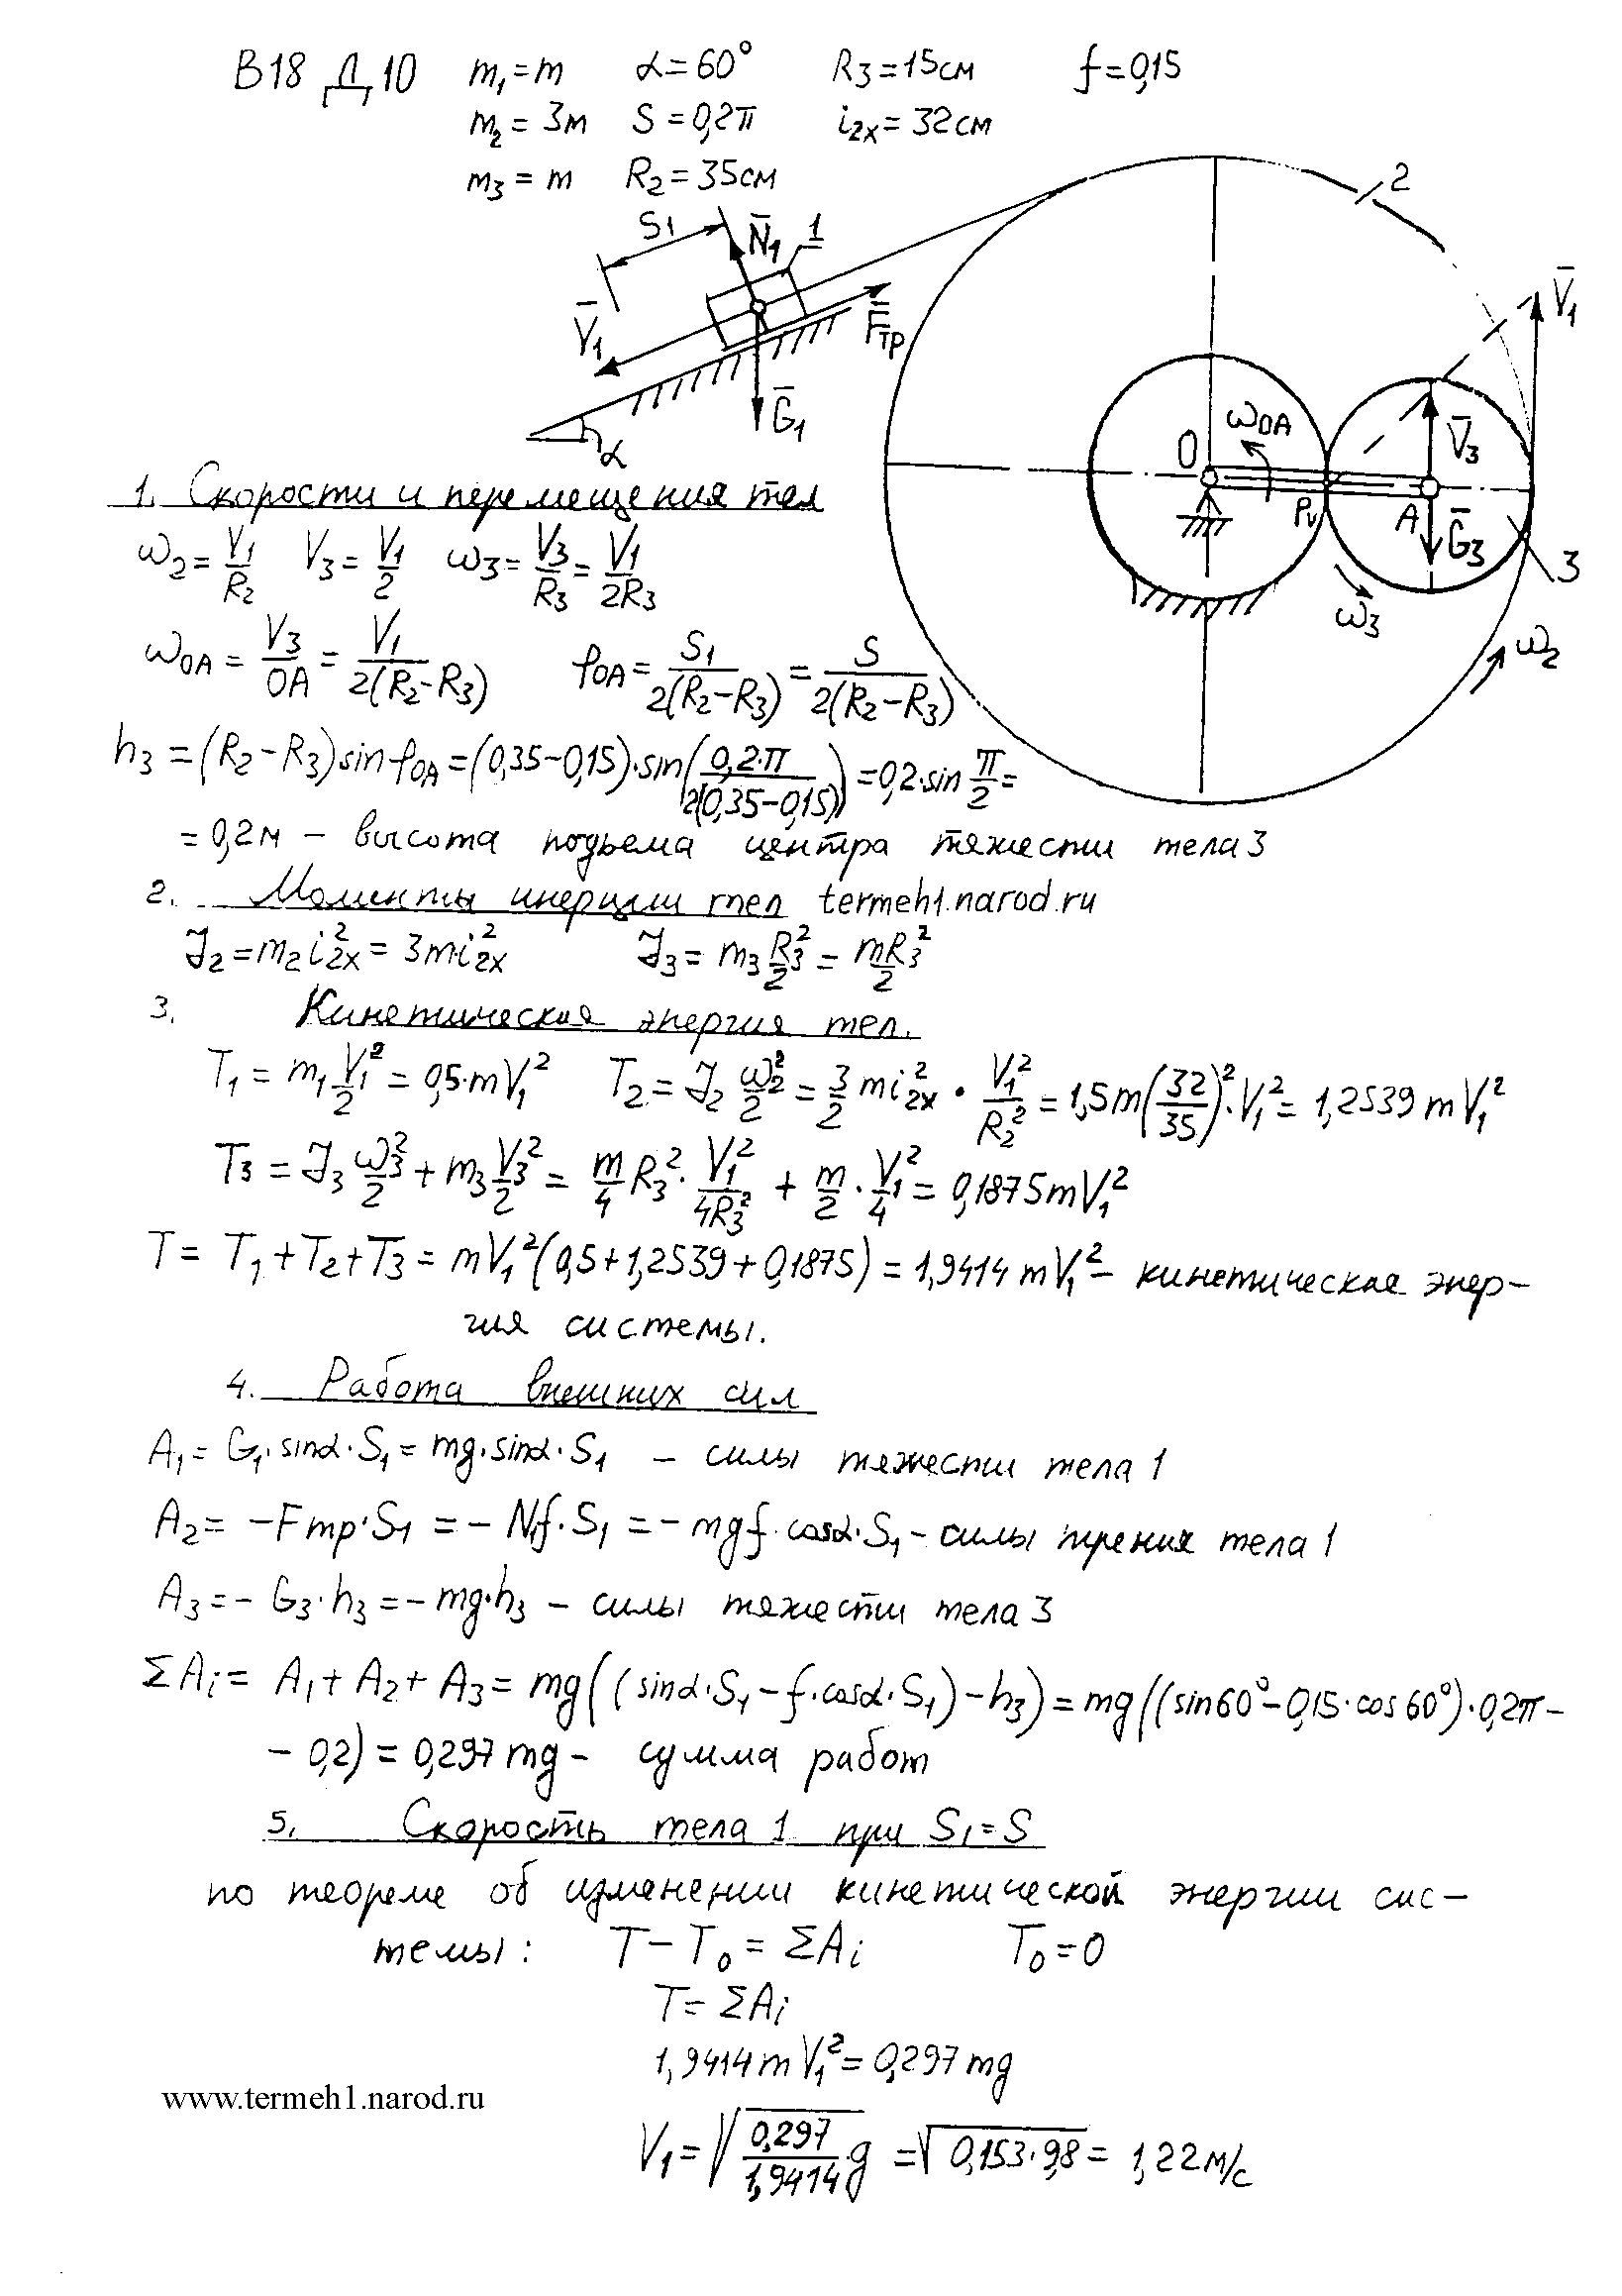 В18 Д10 m₁=m α=60° R₃=15см f=0,15
m₂=3m S=0,2π i₂ₓ=32см
m₃=m R₂=35см
2
S₁ N̄₁ 1
V̄₁ F̄тр V̄₁
Ḡ₁ α
O ω_OA V̄₃
Pv A Ḡ₃ 3
ω₃ ω₂
1. Скорости и перемещения тел
ω₂=V₁/R₂ V₃=V₁/2 ω₃=V₃/R₃=V₁/2R₃
ω_OA=V₃/OA=V₁/2(R₂-R₃) φ_OA=S₁/2(R₂-R₃)=S/2(R₂-R₃)
h₃=(R₂-R₃)sinφ_OA=(0,35-0,15)·sin(0,2·π/2(0,35-0,15))=0,2·sin π/2=
=0,2м – высота подьема центра тяжести тела 3
2. Моменты инерции тел termeh1.narod.ru
J₂=m₂i₂ₓ²=3mi₂ₓ² J₃=m₃R₃²/2=mR₃²/2
3. Кинетическая энергия тел.
T₁=m₁V₁²/2=0,5·mV₁² T₂=J₂ω₂²/2=3/2 mi₂ₓ²·V₁²/R₂²=1,5m(32/35)²·V₁²=1,2539mV₁²
T₃=J₃ω₃²/2+m₃V₃²/2=m/4 R₃²·V₁²/4R₃²+m/2·V₁²/4=0,1875mV₁²
T=T₁+T₂+T₃=mV₁²(0,5+1,2539+0,1875)=1,9414mV₁²– кинетическая энер–
гия системы.
4. Работа внешних сил
A₁=G₁·sinα·S₁=mg·sinα·S₁ – силы тяжести тела 1
A₂=-Fтр·S₁=-N₁f·S₁=-mgf·cosα·S₁– силы трения тела 1
A₃=-G₃·h₃=-mg·h₃ – силы тяжести тела 3
ΣAᵢ=A₁+A₂+A₃=mg((sinα·S₁-f·cosα·S₁)-h₃)=mg((sin60°-0,15·cos60°)·0,2π-
-0,2)=0,297mg – сумма работ
5. Скорость тела 1 при S₁=S
по теореме об изменении кинетической энергии сис–
темы: T-T₀=ΣAᵢ T₀=0
T=ΣAᵢ
1,9414mV₁²=0,297mg
www.termeh1.narod.ru
V₁=√(0,297/1,9414 g)=√(0,153·9,8)=1,22м/с